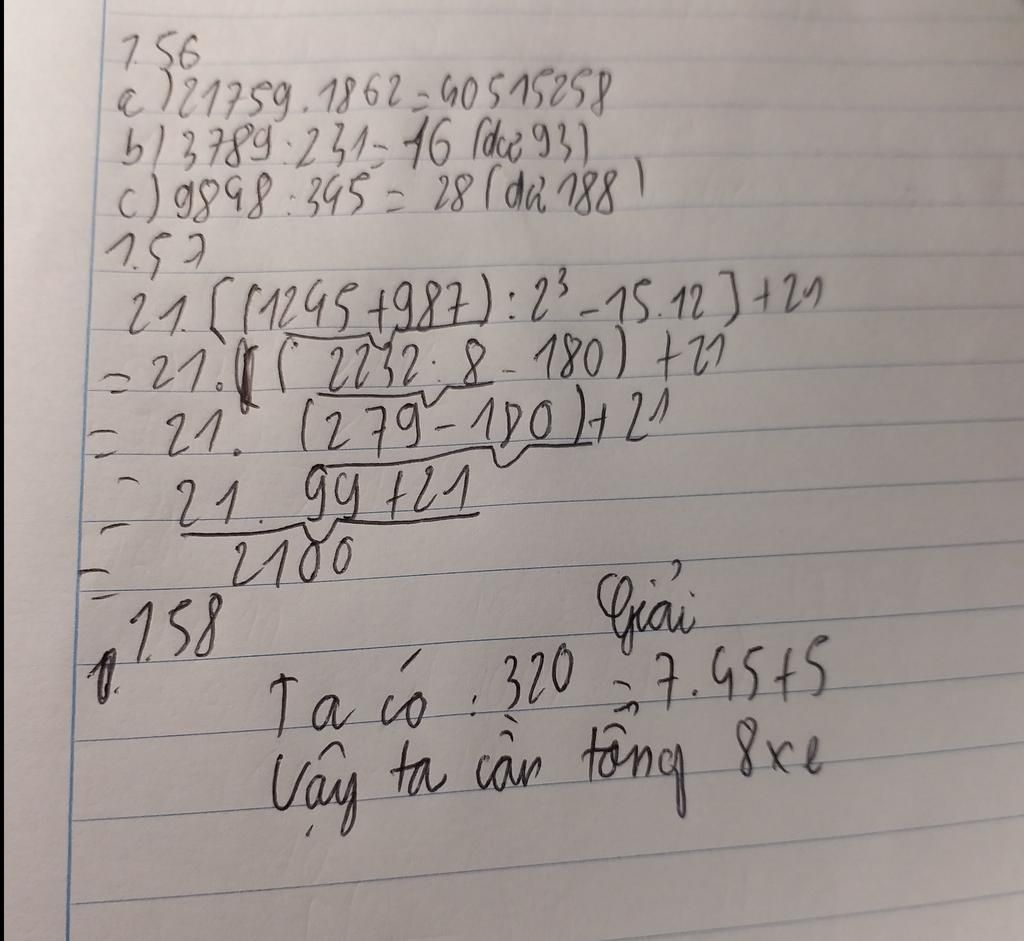 1.56
a) 21759.1862=40515258
b) 3789:231=16 (dư 93)
c) 9848:345 = 28 (dư 188)
1.57
21.[(1245+987):2³-15.12]+21
= 21. (2232:8-180)+21
= 21. (279-180)+21
= 21. 99+21
= 2100
1.58
Giải
Ta có: 320 = 7.45+5
Vậy ta cần tổng 8 xe